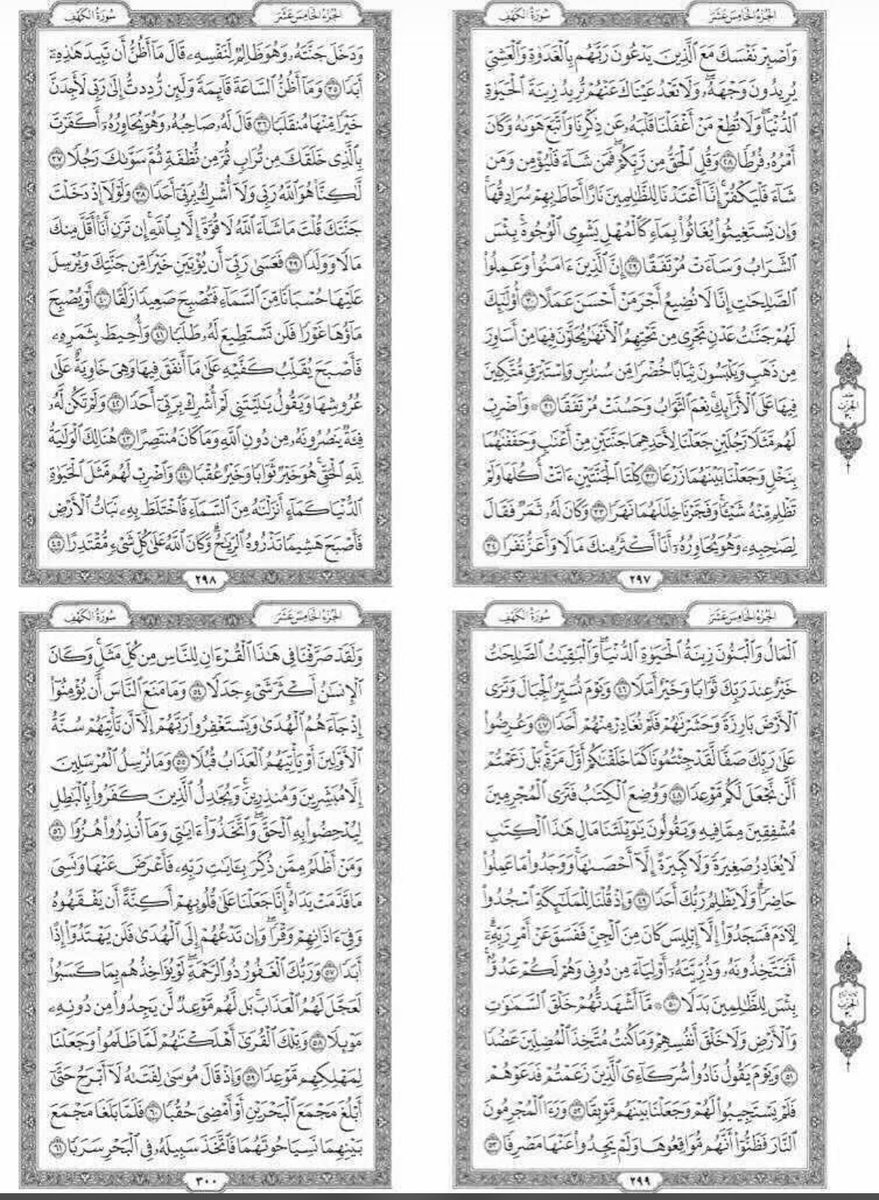 سورة الكهف الجزء الخامس عشر
وَٱصْبِرْ نَفْسَكَ مَعَ ٱلَّذِينَ يَدْعُونَ رَبَّهُم بِٱلْغَدَوٰةِ وَٱلْعَشِىِّ
يُرِيدُونَ وَجْهَهُۥ ۖ وَلَا تَعْدُ عَيْنَاكَ عَنْهُمْ تُرِيدُ زِينَةَ ٱلْحَيَوٰةِ
ٱلدُّنْيَا ۖ وَلَا تُطِعْ مَنْ أَغْفَلْنَا قَلْبَهُۥ عَن ذِكْرِنَا وَٱتَّبَعَ هَوَىٰهُ وَكَانَ
أَمْرُهُۥ فُرُطًا ٢٨ وَقُلِ ٱلْحَقُّ مِن رَّبِّكُمْ ۖ فَمَن شَآءَ فَلْيُؤْمِن وَمَن
شَآءَ فَلْيَكْفُرْ ۚ إِنَّآ أَعْتَدْنَا لِلظَّٰلِمِينَ نَارًا أَحَاطَ بِهِمْ سُرَادِقُهَا ۚ
وَإِن يَسْتَغِيثُوا۟ يُغَاثُوا۟ بِمَآءٍ كَٱلْمُهْلِ يَشْوِى ٱلْوُجُوهَ ۚ بِئْسَ
ٱلشَّرَابُ وَسَآءَتْ مُرْتَفَقًا ٢٩ إِنَّ ٱلَّذِينَ ءَامَنُوا۟ وَعَمِلُوا۟
ٱلصَّٰلِحَٰتِ إِنَّا لَا نُضِيعُ أَجْرَ مَنْ أَحْسَنَ عَمَلًا ٣٠ أُو۟لَٰٓئِكَ
لَهُمْ جَنَّٰتُ عَدْنٍ تَجْرِى مِن تَحْتِهِمُ ٱلْأَنْهَٰرُ يُحَلَّوْنَ فِيهَا مِنْ أَسَاوِرَ
مِن ذَهَبٍ وَيَلْبَسُونَ ثِيَابًا خُضْرًا مِّن سُندُسٍ وَإِسْتَبْرَقٍ مُّتَّكِـِٔينَ
فِيهَا عَلَى ٱلْأَرَآئِكِ ۚ نِعْمَ ٱلثَّوَابُ وَحَسُنَتْ مُرْتَفَقًا ٣١ ۞ وَٱضْرِبْ
لَهُم مَّثَلًا رَّجُلَيْنِ جَعَلْنَا لِأَحَدِهِمَا جَنَّتَيْنِ مِنْ أَعْنَٰبٍ وَحَفَفْنَٰهُمَا
بِنَخْلٍ وَجَعَلْنَا بَيْنَهُمَا زَرْعًا ٣٢ كِلْتَا ٱلْجَنَّتَيْنِ ءَاتَتْ أُكُلَهَا وَلَمْ
تَظْلِم مِّنْهُ شَيْـًٔا ۚ وَفَجَّرْنَا خِلَٰلَهُمَا نَهَرًا ٣٣ وَكَانَ لَهُۥ ثَمَرٌ فَقَالَ
لِصَٰحِبِهِۦ وَهُوَ يُحَاوِرُهُۥٓ أَنَا۠ أَكْثَرُ مِنكَ مَالًا وَأَعَزُّ نَفَرًا ٣٤
٢٩٧
سورة الكهف الجزء الخامس عشر
وَدَخَلَ جَنَّتَهُۥ وَهُوَ ظَالِمٌ لِّنَفْسِهِۦ قَالَ مَآ أَظُنُّ أَن تَبِيدَ هَٰذِهِۦٓ
أَبَدًا ٣٥ وَمَآ أَظُنُّ ٱلسَّاعَةَ قَآئِمَةً وَلَئِن رُّدِدتُّ إِلَىٰ رَبِّى لَأَجِدَنَّ
خَيْرًا مِّنْهَا مُنقَلَبًا ٣٦ قَالَ لَهُۥ صَاحِبُهُۥ وَهُوَ يُحَاوِرُهُۥٓ أَكَفَرْتَ
بِٱلَّذِى خَلَقَكَ مِن تُرَابٍ ثُمَّ مِن نُّطْفَةٍ ثُمَّ سَوَّىٰكَ رَجُلًا ٣٧
لَّٰكِنَّا۠ هُوَ ٱللَّهُ رَبِّى وَلَآ أُشْرِكُ بِرَبِّىٓ أَحَدًا ٣٨ وَلَوْلَآ إِذْ دَخَلْتَ
جَنَّتَكَ قُلْتَ مَا شَآءَ ٱللَّهُ لَا قُوَّةَ إِلَّا بِٱللَّهِ ۚ إِن تَرَنِ أَنَا۠ أَقَلَّ مِنكَ
مَالًا وَوَلَدًا ٣٩ فَعَسَىٰ رَبِّىٓ أَن يُؤْتِيَنِ خَيْرًا مِّن جَنَّتِكَ وَيُرْسِلَ
عَلَيْهَا حُسْبَانًا مِّنَ ٱلسَّمَآءِ فَتُصْبِحَ صَعِيدًا زَلَقًا ٤٠ أَوْ يُصْبِحَ
مَآؤُهَا غَوْرًا فَلَن تَسْتَطِيعَ لَهُۥ طَلَبًا ٤١ وَأُحِيطَ بِثَمَرِهِۦ
فَأَصْبَحَ يُقَلِّبُ كَفَّيْهِ عَلَىٰ مَآ أَنفَقَ فِيهَا وَهِىَ خَاوِيَةٌ عَلَىٰ
عُرُوشِهَا وَيَقُولُ يَٰلَيْتَنِى لَمْ أُشْرِكْ بِرَبِّىٓ أَحَدًا ٤٢ وَلَمْ تَكُن لَّهُۥ
فِئَةٌ يَنصُرُونَهُۥ مِن دُونِ ٱللَّهِ وَمَا كَانَ مُنتَصِرًا ٤٣ هُنَالِكَ ٱلْوَلَٰيَةُ
لِلَّهِ ٱلْحَقِّ ۚ هُوَ خَيْرٌ ثَوَابًا وَخَيْرٌ عُقْبًا ٤٤ وَٱضْرِبْ لَهُم مَّثَلَ ٱلْحَيَوٰةِ
ٱلدُّنْيَا كَمَآءٍ أَنزَلْنَٰهُ مِنَ ٱلسَّمَآءِ فَٱخْتَلَطَ بِهِۦ نَبَاتُ ٱلْأَرْضِ
فَأَصْبَحَ هَشِيمًا تَذْرُوهُ ٱلرِّيَٰحُ ۗ وَكَانَ ٱللَّهُ عَلَىٰ كُلِّ شَىْءٍ مُّقْتَدِرًا ٤٥
٢٩٨
سورة الكهف الجزء الخامس عشر
ٱلْمَالُ وَٱلْبَنُونَ زِينَةُ ٱلْحَيَوٰةِ ٱلدُّنْيَا ۖ وَٱلْبَٰقِيَٰتُ ٱلصَّٰلِحَٰتُ
خَيْرٌ عِندَ رَبِّكَ ثَوَابًا وَخَيْرٌ أَمَلًا ٤٦ وَيَوْمَ نُسَيِّرُ ٱلْجِبَالَ وَتَرَى
ٱلْأَرْضَ بَارِزَةً وَحَشَرْنَٰهُمْ فَلَمْ نُغَادِرْ مِنْهُمْ أَحَدًا ٤٧ وَعُرِضُوا۟
عَلَىٰ رَبِّكَ صَفًّا لَّقَدْ جِئْتُمُونَا كَمَا خَلَقْنَٰكُمْ أَوَّلَ مَرَّةٍۭ ۚ بَلْ زَعَمْتُمْ
أَلَّن نَّجْعَلَ لَكُم مَّوْعِدًا ٤٨ وَوُضِعَ ٱلْكِتَٰبُ فَتَرَى ٱلْمُجْرِمِينَ
مُشْفِقِينَ مِمَّا فِيهِ وَيَقُولُونَ يَٰوَيْلَتَنَا مَالِ هَٰذَا ٱلْكِتَٰبِ
لَا يُغَادِرُ صَغِيرَةً وَلَا كَبِيرَةً إِلَّآ أَحْصَىٰهَا ۚ وَوَجَدُوا۟ مَا عَمِلُوا۟
حَاضِرًا ۗ وَلَا يَظْلِمُ رَبُّكَ أَحَدًا ٤٩ وَإِذْ قُلْنَا لِلْمَلَٰٓئِكَةِ ٱسْجُدُوا۟
لِـَٔادَمَ فَسَجَدُوٓا۟ إِلَّآ إِبْلِيسَ كَانَ مِنَ ٱلْجِنِّ فَفَسَقَ عَنْ أَمْرِ رَبِّهِۦٓ ۗ
أَفَتَتَّخِذُونَهُۥ وَذُرِّيَّتَهُۥٓ أَوْلِيَآءَ مِن دُونِى وَهُمْ لَكُمْ عَدُوٌّۢ ۚ
بِئْسَ لِلظَّٰلِمِينَ بَدَلًا ٥٠ ۞ مَّآ أَشْهَدتُّهُمْ خَلْقَ ٱلسَّمَٰوَٰتِ
وَٱلْأَرْضِ وَلَا خَلْقَ أَنفُسِهِمْ وَمَا كُنتُ مُتَّخِذَ ٱلْمُضِلِّينَ عَضُدًا
٥١ وَيَوْمَ يَقُولُ نَادُوا۟ شُرَكَآءِىَ ٱلَّذِينَ زَعَمْتُمْ فَدَعَوْهُمْ
فَلَمْ يَسْتَجِيبُوا۟ لَهُمْ وَجَعَلْنَا بَيْنَهُم مَّوْبِقًا ٥٢ وَرَءَا ٱلْمُجْرِمُونَ
ٱلنَّارَ فَظَنُّوٓا۟ أَنَّهُم مُّوَاقِعُوهَا وَلَمْ يَجِدُوا۟ عَنْهَا مَصْرِفًا ٥٣
٢٩٩
سورة الكهف الجزء الخامس عشر
وَلَقَدْ صَرَّفْنَا فِى هَٰذَا ٱلْقُرْءَانِ لِلنَّاسِ مِن كُلِّ مَثَلٍ ۚ وَكَانَ
ٱلْإِنسَٰنُ أَكْثَرَ شَىْءٍ جَدَلًا ٥٤ وَمَا مَنَعَ ٱلنَّاسَ أَن يُؤْمِنُوٓا۟
إِذْ جَآءَهُمُ ٱلْهُدَىٰ وَيَسْتَغْفِرُوا۟ رَبَّهُمْ إِلَّآ أَن تَأْتِيَهُمْ سُنَّةُ
ٱلْأَوَّلِينَ أَوْ يَأْتِيَهُمُ ٱلْعَذَابُ قُبُلًا ٥٥ وَمَا نُرْسِلُ ٱلْمُرْسَلِينَ
إِلَّا مُبَشِّرِينَ وَمُنذِرِينَ ۚ وَيُجَٰدِلُ ٱلَّذِينَ كَفَرُوا۟ بِٱلْبَٰطِلِ
لِيُدْحِضُوا۟ بِهِ ٱلْحَقَّ ۖ وَٱتَّخَذُوٓا۟ ءَايَٰتِى وَمَآ أُنذِرُوا۟ هُزُوًا ٥٦
وَمَنْ أَظْلَمُ مِمَّن ذُكِّرَ بِـَٔايَٰتِ رَبِّهِۦ فَأَعْرَضَ عَنْهَا وَنَسِىَ
مَا قَدَّمَتْ يَدَاهُ ۚ إِنَّا جَعَلْنَا عَلَىٰ قُلُوبِهِمْ أَكِنَّةً أَن يَفْقَهُوهُ
وَفِىٓ ءَاذَانِهِمْ وَقْرًا ۖ وَإِن تَدْعُهُمْ إِلَى ٱلْهُدَىٰ فَلَن يَهْتَدُوٓا۟ إِذًا
أَبَدًا ٥٧ وَرَبُّكَ ٱلْغَفُورُ ذُو ٱلرَّحْمَةِ ۖ لَوْ يُؤَاخِذُهُم بِمَا كَسَبُوا۟
لَعَجَّلَ لَهُمُ ٱلْعَذَابَ ۚ بَل لَّهُم مَّوْعِدٌ لَّن يَجِدُوا۟ مِن دُونِهِۦ
مَوْئِلًا ٥٨ وَتِلْكَ ٱلْقُرَىٰٓ أَهْلَكْنَٰهُمْ لَمَّا ظَلَمُوا۟ وَجَعَلْنَا
لِمَهْلِكِهِم مَّوْعِدًا ٥٩ وَإِذْ قَالَ مُوسَىٰ لِفَتَىٰهُ لَآ أَبْرَحُ حَتَّىٰٓ
أَبْلُغَ مَجْمَعَ ٱلْبَحْرَيْنِ أَوْ أَمْضِىَ حُقُبًا ٦٠ فَلَمَّا بَلَغَا مَجْمَعَ
بَيْنِهِمَا نَسِيَا حُوتَهُمَا فَٱتَّخَذَ سَبِيلَهُۥ فِى ٱلْبَحْرِ سَرَبًا ٦١
٣٠٠